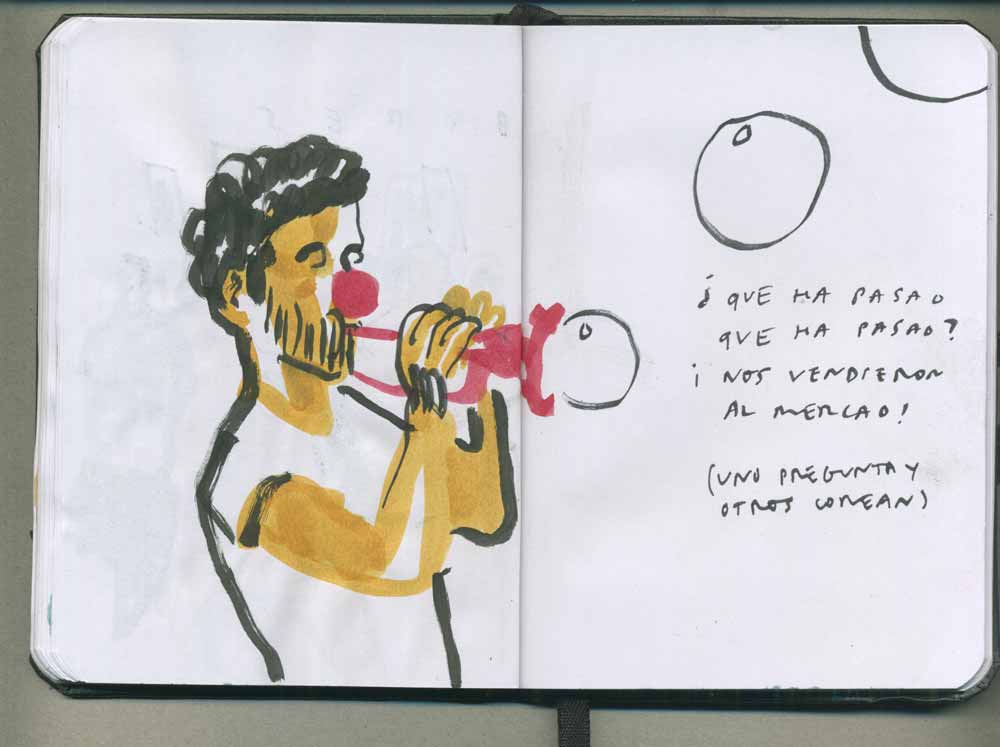 ¿QUE HA PASAO
QUE HA PASAO?
¡NOS VENDIERON
AL MERCAO!
(UNO PREGUNTA Y
OTROS COREAN)